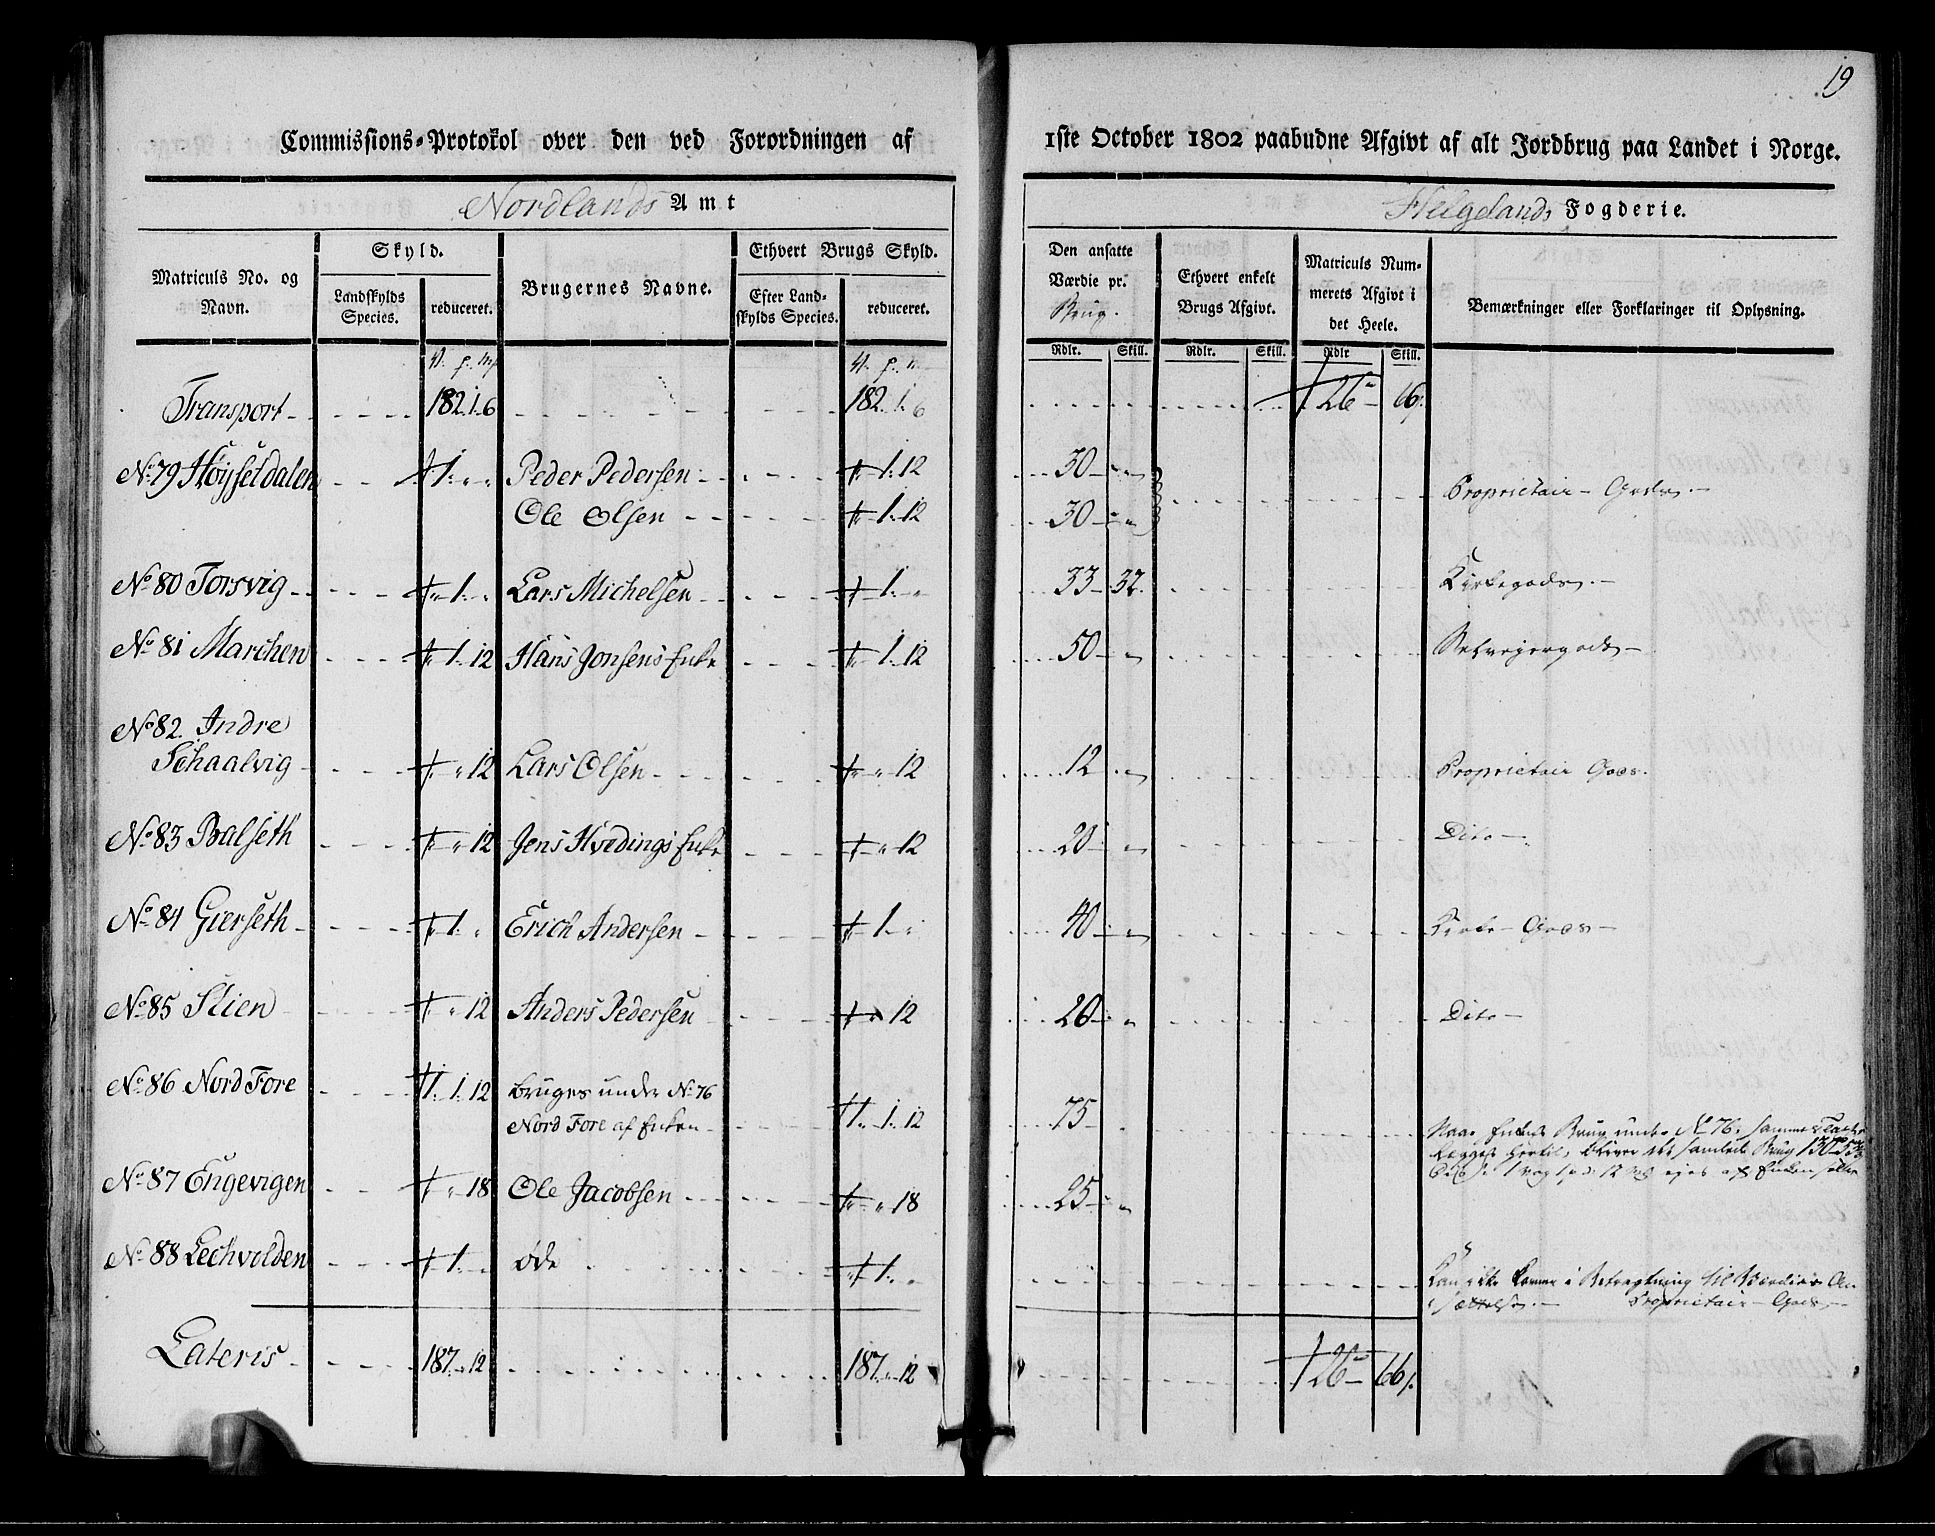 19
Commissions-Protokol over den ved Forordningen af 1ste October 1802 paabudne Afgivt af alt Jordbrug paa Landet i Norge.
Nordlands Amt Helgelands Fogderie.
Matriculs No. og Navn. Skyld. Brugernes Navne. Ethvert Brugs Skyld. Den ansatte Værdie pr. Brug. Ethvert enkelt Brugs Afgivt. Matriculs Nummerets Afgivt i det Heele. Bemærkninger eller Forklaringer til Oplysning.
Landskylds Species. reduceret. Efter Landskylds Species. reduceret.
Rdlr. Skill. Rdlr. Skill. Rdlr Skill.
Transport 182. 1. 6 182. 1. 6 126 66
No 79 Høysetdalen 1. Peder Pedersen 1. 12 30 Proprietair Gods
Ole Olsen 1. 12 30
No 80 Torsvig 1. Lars Michelsen 1. 33 32 Kirkegods
No 81 Marchen 1. 12 Hans Jonsens Enke 1. 12 50 Selveiergods
No 82. Indre
Schaalvig 12 Lars Olsen 12 12 Proprietair Gods
No 83 Balseth 12 Jens Hvedings Enke 12 20 Dito
No 84 Gierseth 1. Erich Andersen 1. 40 Kirke Gods
No 85 Stien 12 Anders Pedersen 12 20 Dito
No 86 Nord Fore 1. 1. 12 bruges under No 76
Nord Fore af Enken 1. 1. 12 75
Naar Enkens Brug under No 76. samme
lægges hertil, bliver det samlede Brug 130
1 vog 1 pd. 12 mk ejes af Enken selv
No 87 Engevigen 18 Ole Jacobsen 18 25
No 88 Lechvolden 1. øde 1.
Kan ikke komme i Betragtning til Værdies An-
sættelse. Proprietair Gods
Lateris 187. 12 187. 12 126 66